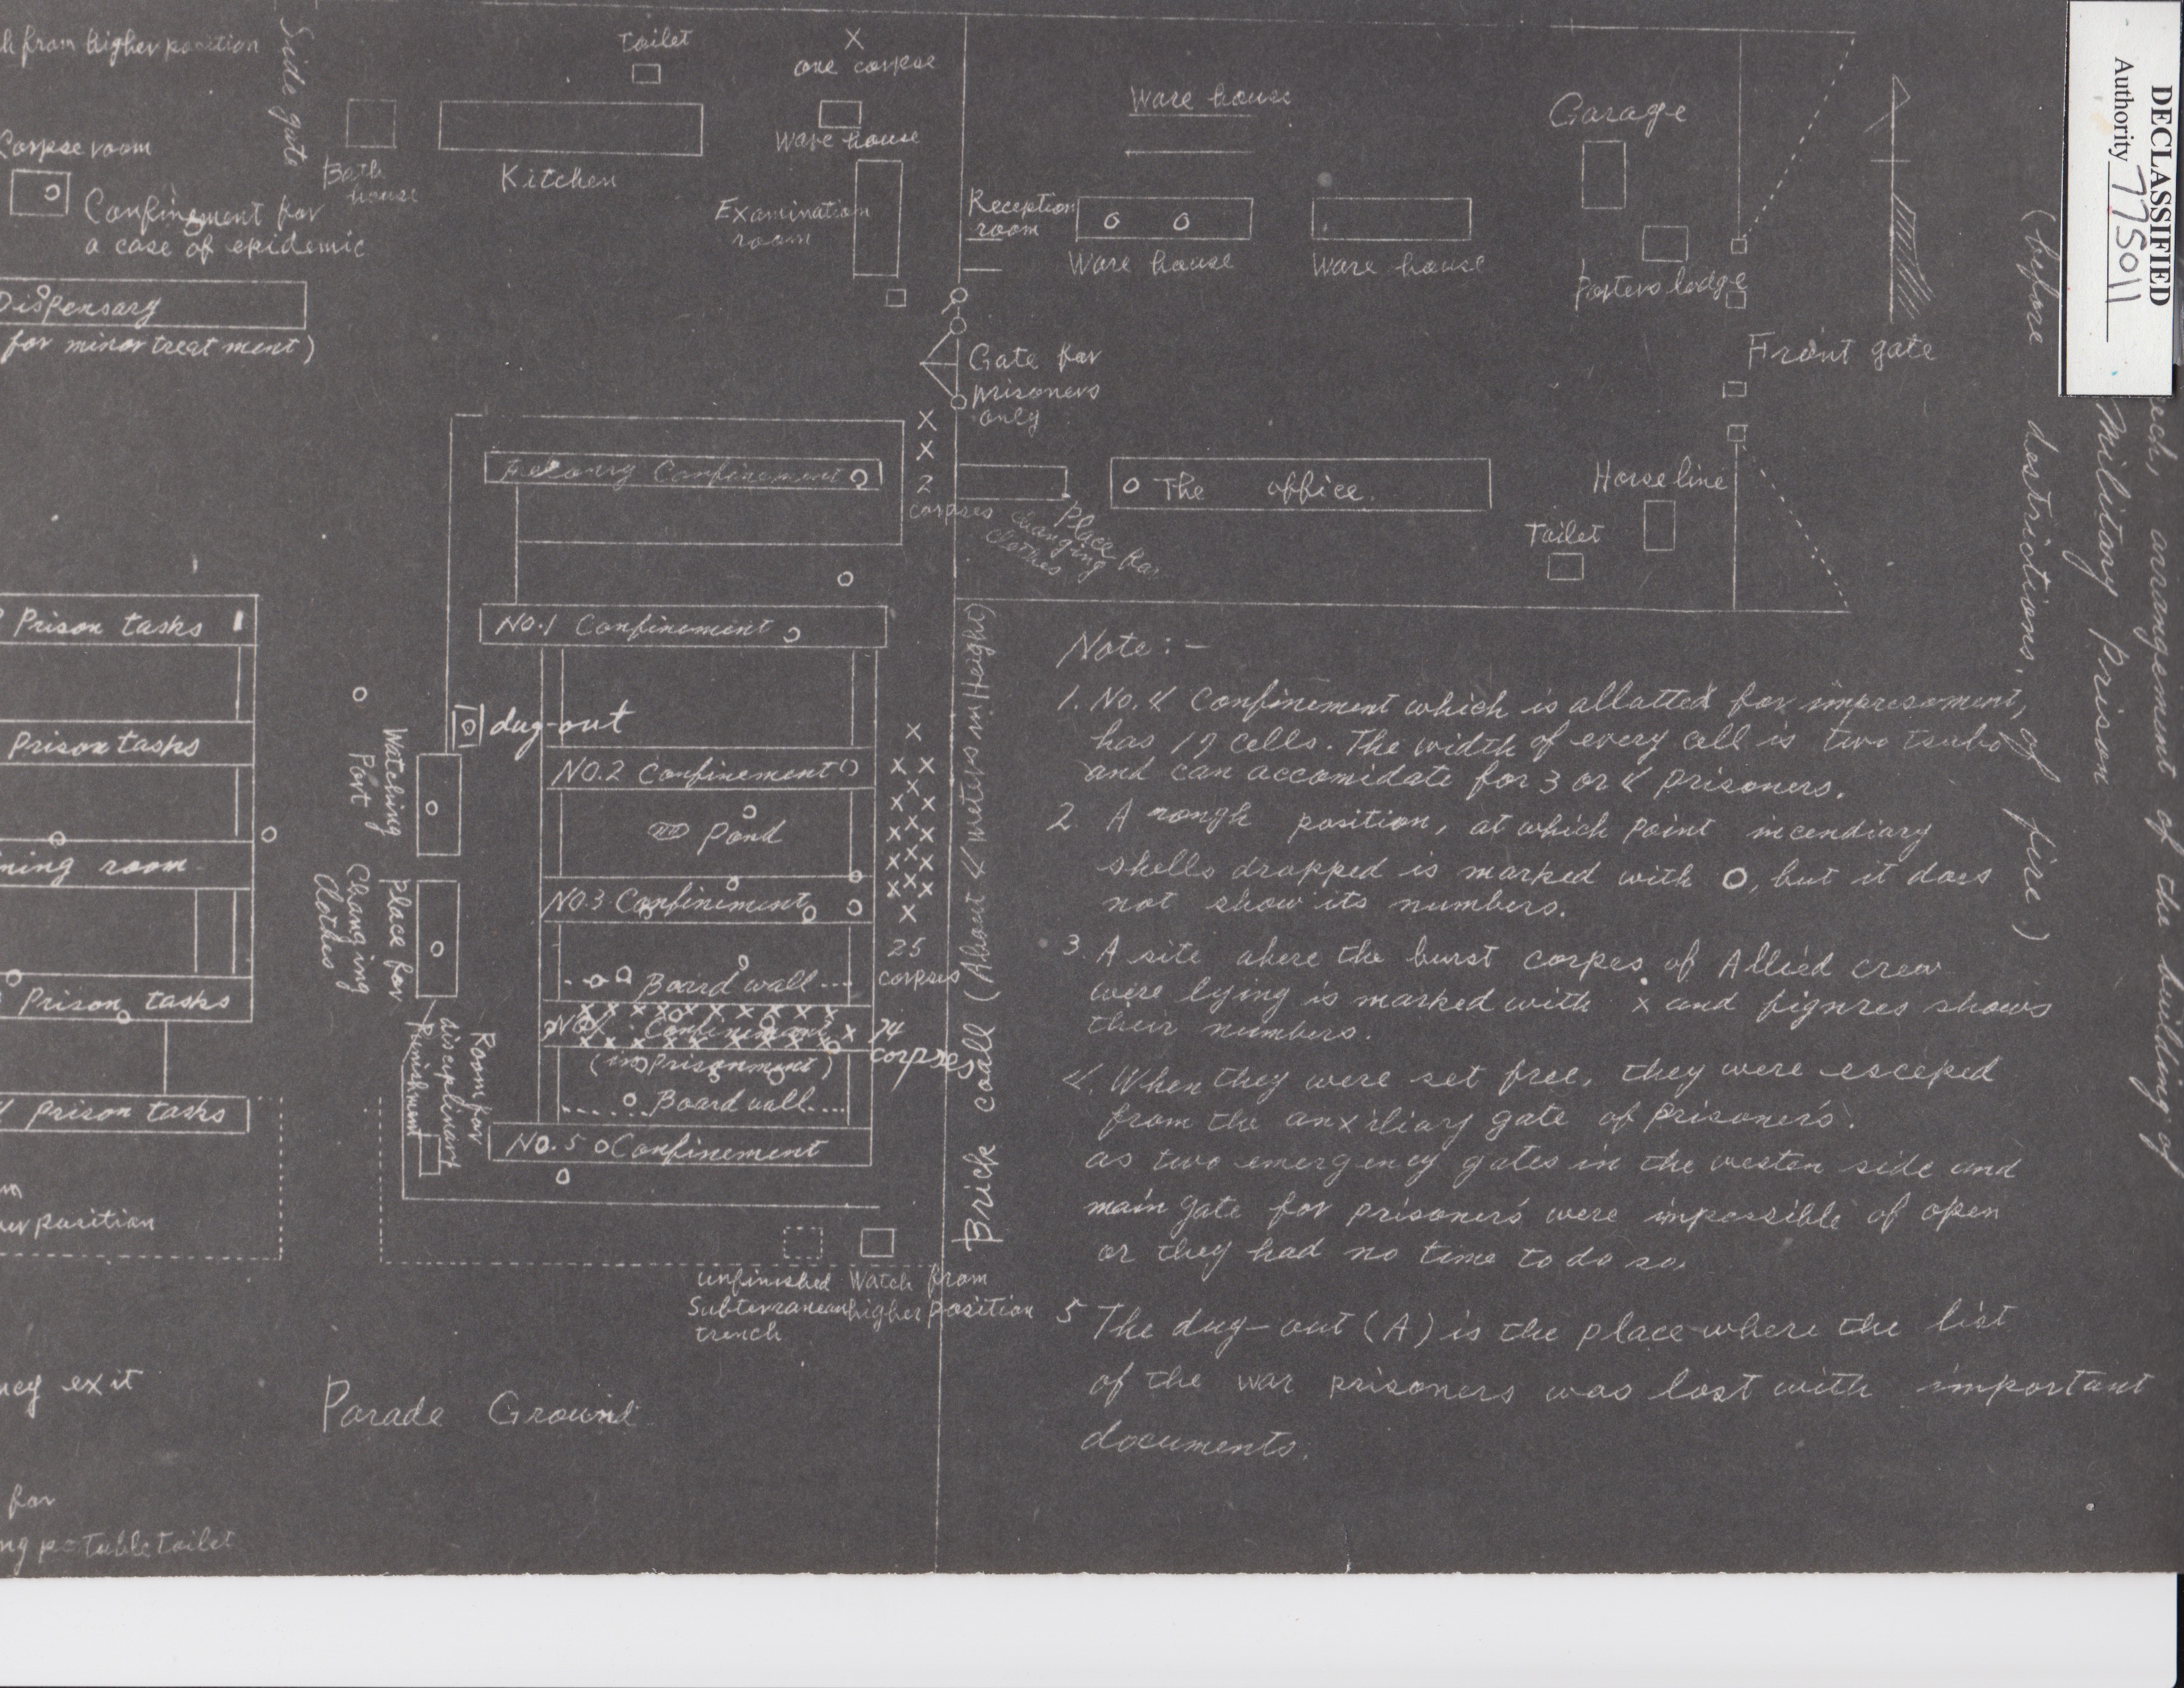 DECLASSIFIED
Authority 775011
arrangement of the building of
Military Prison
(before destrictions, of fire)
from higher position
Side gate
Toilet
X
one corpse
Ware house
Garage
Corpse room
Bath
house
Kitchen
Ware house
Confinement for
a case of epidemic
Examination
room
Reception
room
Ware house
Ware house
Porters lodge
Front gate
Dispensary
for minor treatment)
Gate for
prisoners
only
X
X
2
corpses
Confinement
Place for
changing
clothes
The office.
Horse line
Toilet
Prison tasks
NO.1 Confinement
dug-out
Prison tasks
Watching
Port
NO.2 Confinement
Pond
ning room
Place for
Changing
clothes
NO.3 Confinement
25
corpses
Board wall
Prison tasks
Confinement
(imprisonment)
corpses
Room for
disciplinary
Punishment
Board wall
Prison tasks
NO.5 Confinement
Brick wall (About 4 meters in Height)
position
unfinished
Subterranean
trench
Watch from
higher position
exit
Parade Ground
for
portable toilet
Note:-
1. No. 4 Confinement which is allatted for impresoment,
has 17 cells. The width of every cell is two tsubo
and can accomidate for 3 or 4 prisoners.
2 A rough position, at which point incendiary
shells dropped is marked with O, but it does
not show its numbers.
3. A site where the burst corpes of Allied crew
were lying is marked with x and figures shows
their numbers.
4. When they were set free, they were esceped
from the auxiliary gate of Prisoner's.
as two emergency gates in the westen side and
main gate for prisoner's were impossible of open
or they had no time to do so.
5 The dug-out (A) is the place where the list
of the war prisoners was lost with important
documents.